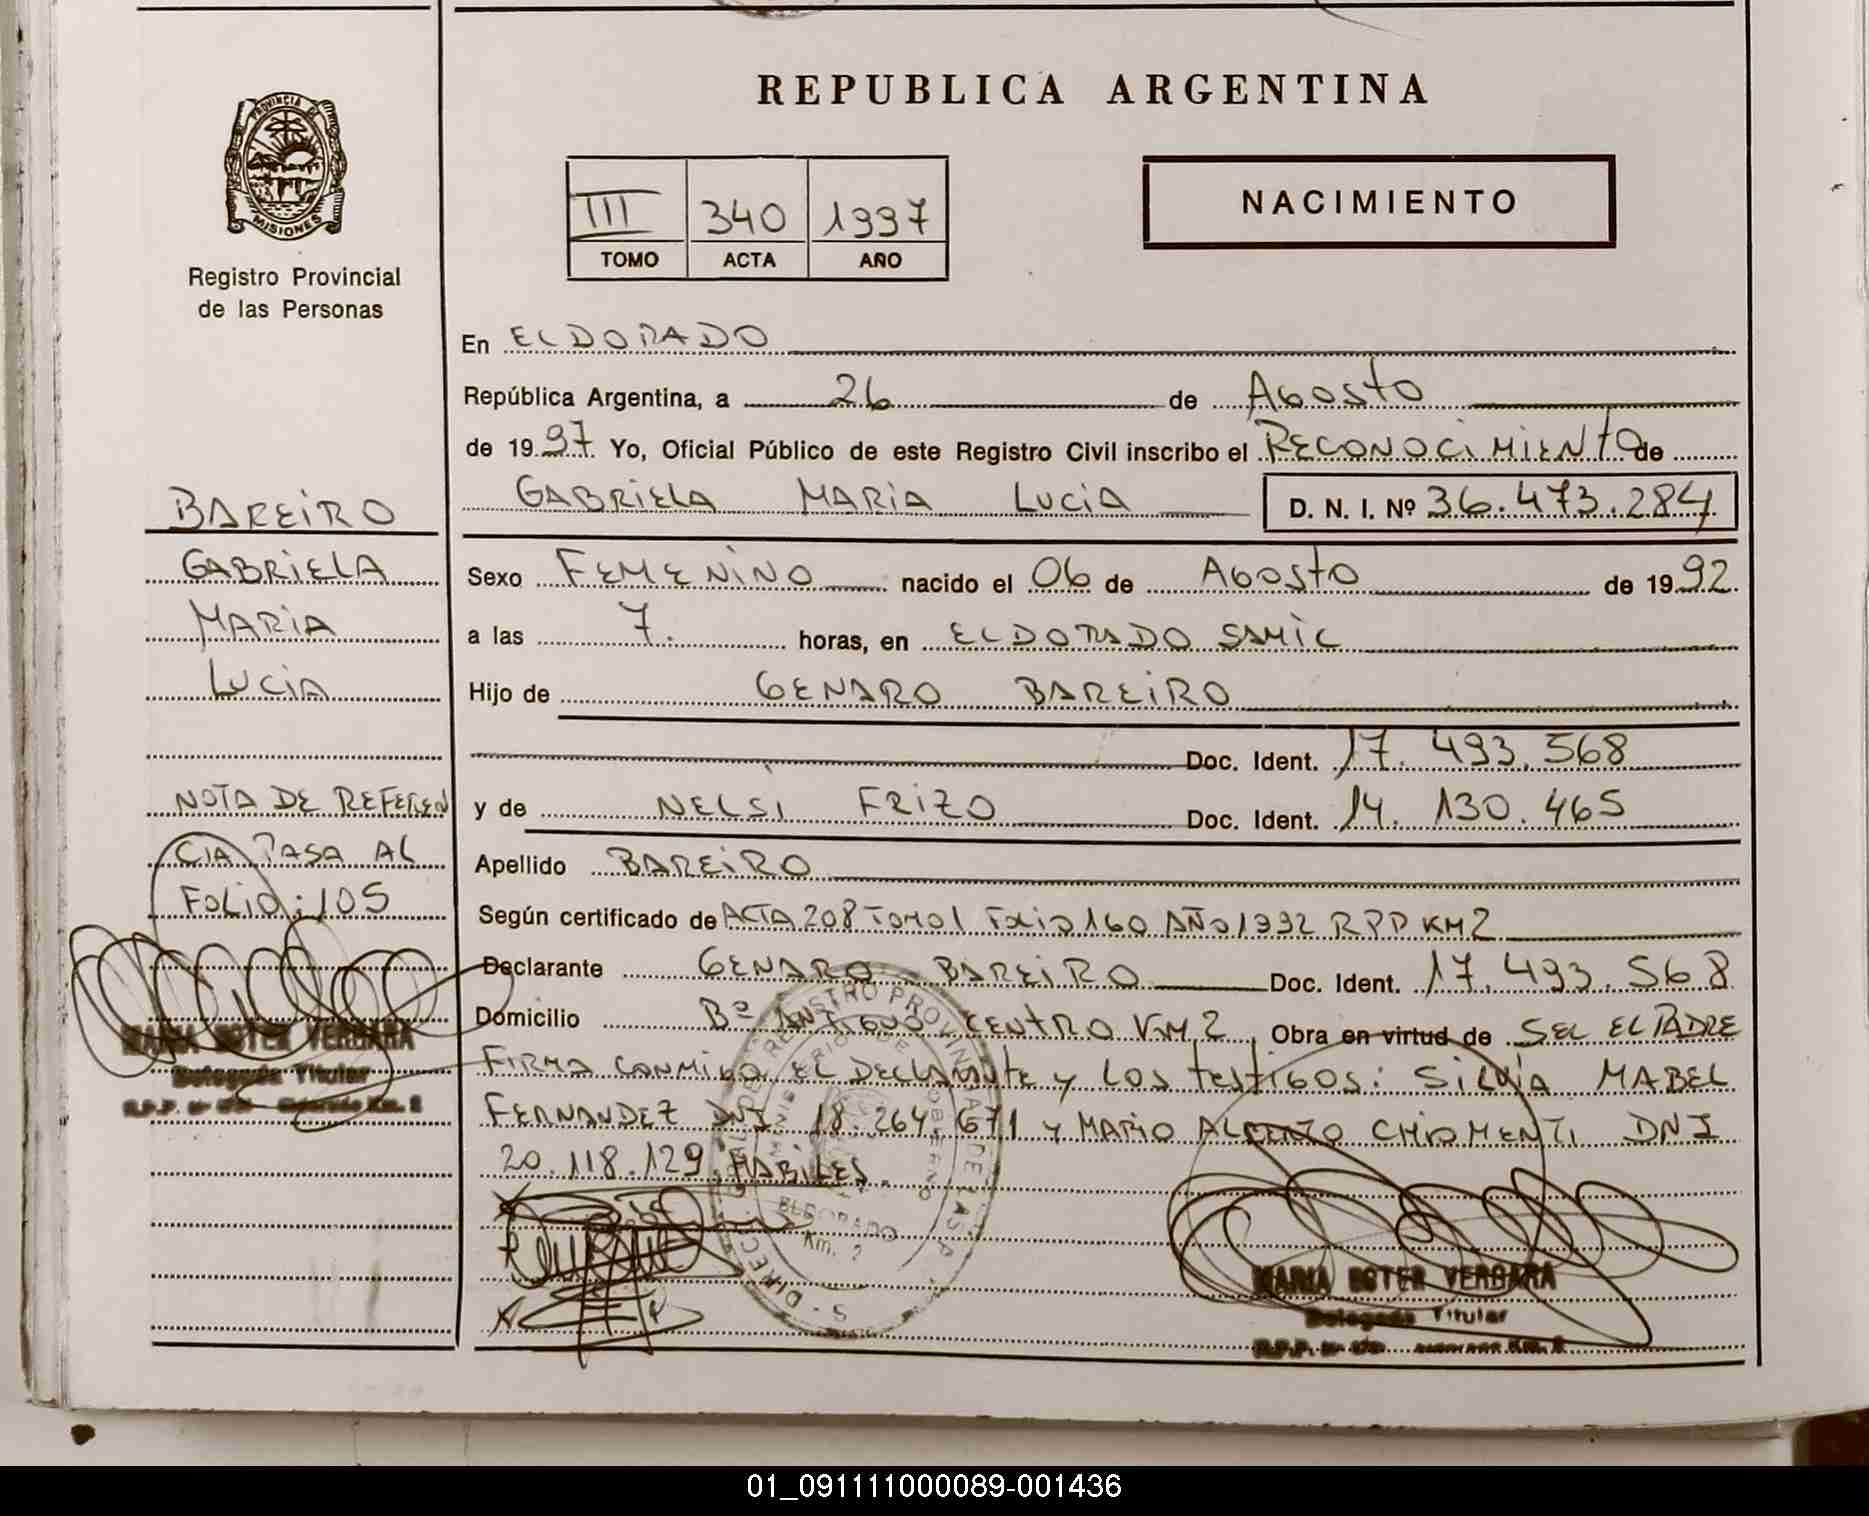 REPUBLICA ARGENTINA
PROVINCIA DE MISIONES
Registro Provincial
de las Personas
III 340 1997
TOMO ACTA AÑO
NACIMIENTO
BAREIRO
GABRIELA
MARIA
LUCIA
NOTA DE REFEREN
CIA PASA AL
FOLIO: 105
MARIA ESTER VERGARA
Delegada Titular
En ELDORADO
República Argentina, a 26 de AGOSTO
de 1997 Yo, Oficial Público de este Registro Civil inscribo el RECONOCIMIENTO de
GABRIELA MARIA LUCIA D. N. I. Nº 36.473.284
Sexo FEMENINO nacido el 06 de AGOSTO de 1992
a las 7. horas, en ELDORADO SAMIC
Hijo de GENARO BAREIRO
Doc. Ident. 17.493.568
y de NELSI FRIZO Doc. Ident. 14.130.465
Apellido BAREIRO
Según certificado de ACTA 208 TOMO 1 FOLIO 160 AÑO 1992 RPP KM 2
Declarante GENARO BAREIRO Doc. Ident. 17.493.568
Domicilio Bº ANTIGUO CENTRO KM 2 Obra en virtud de SER EL PADRE
FIRMA CONMIGO EL DECLARANTE Y LOS TESTIGOS: SILVIA MABEL
FERNANDEZ DNI 18.264.671 Y MARIO ALBERTO CHIOMENTI DNI
20.118.129 HABILES.
ELDORADO
Km. 2
MARIA ESTER VERGARA
Delegada Titular
01_091111000089-001436